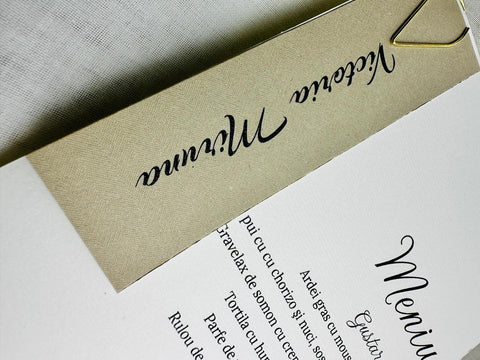 Victoria Miruna
Meniu
Gustar
Ardei gras cu mous
pui cu cu chorizo și nuci, sos
Gravelax de somon cu crem
Tortila cu hum
Parfe de
Rulou de